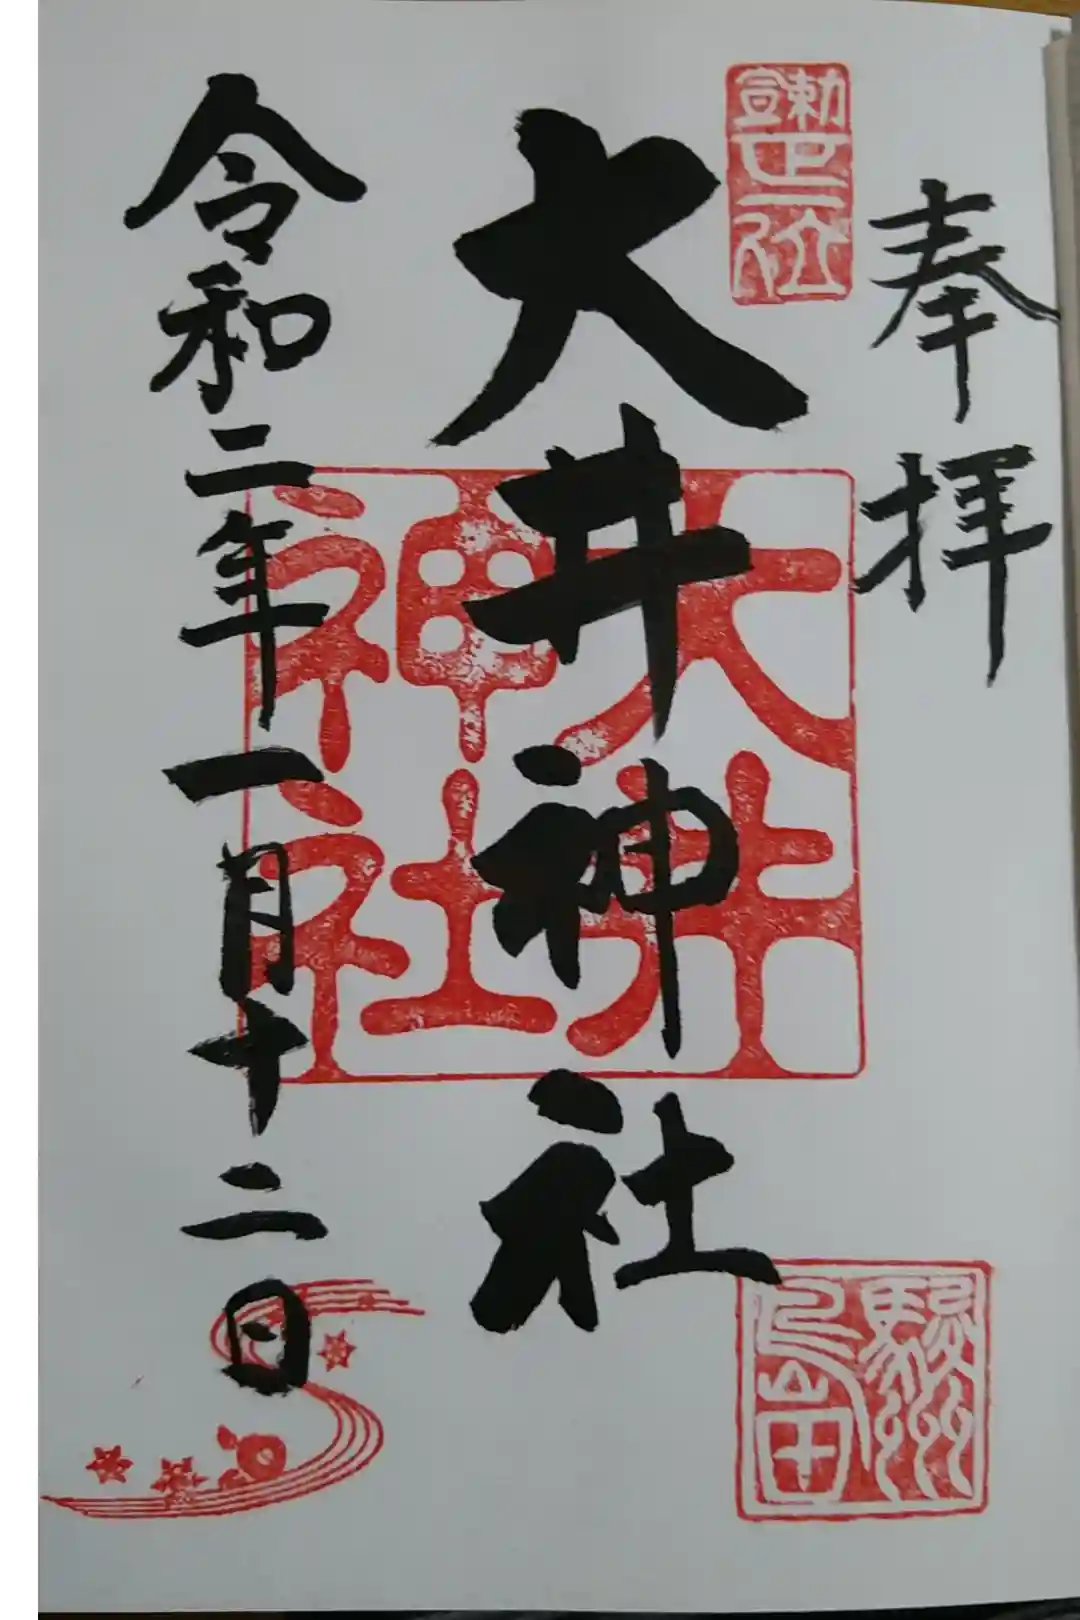 奉拝
勅宣正一位
大井神社
大井神社
駿州
島田
令和二年一月十二日